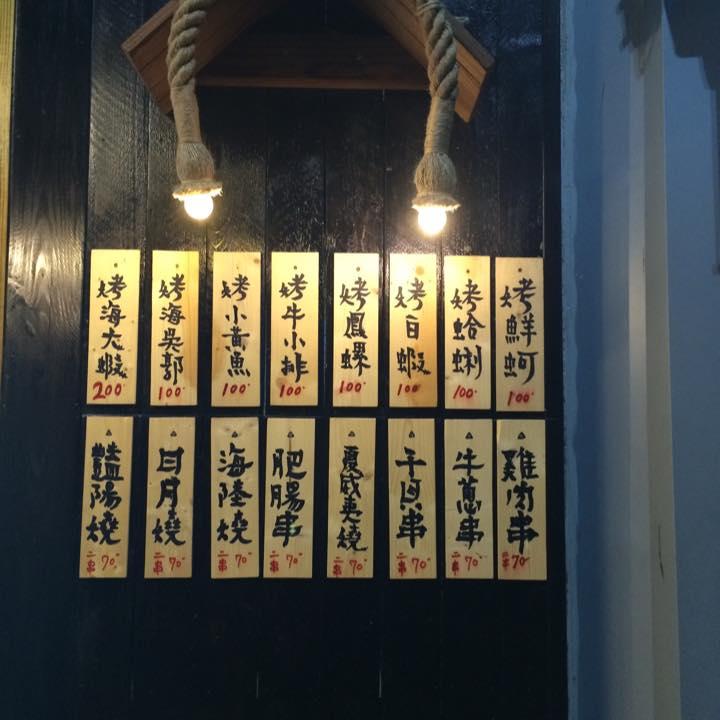 烤鮮蚵
100
烤蛤蜊
100
烤白蝦
100
烤鳳螺
100
烤牛小排
100
烤小黃魚
100
烤海吳郭
100
烤海大蝦
200
雞肉串
二串70
牛蔥串
二串70
干貝串
二串70
夏威夷燒
二串70
肥腸串
二串70
海陸燒
二串70
日月燒
二串70
豔陽燒
二串70